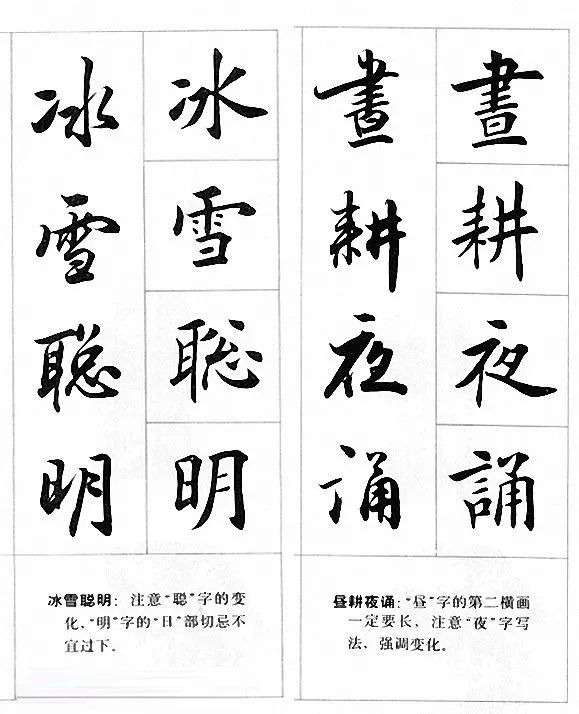 冰雪聪明
冰雪聡明
冰雪聪明：注意“聪”字的变
化、“明”字的“日”部切忌不
宜过下。
晝耕夜诵
晝耕夜誦
昼耕夜诵：“昼”字的第二横画
一定要长，注意“夜”字写
法，强调变化。